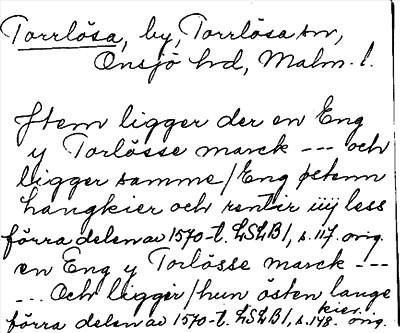 Torrlösa, by, Torrlösa sn,
Onsjö hd, Malm. l.
Jtem ligger der en Eng
y Torlösse marck --- och
ligger samme/Eng östenn
hangkier och rentir iiij less
förra delen av 1570-t. LSLB1, s. 117. orig.
en Eng y Torlösse marck ---
... Och ligger/hun östen lange
kier.
förra delen av 1570-t. LSLB1, s. 178. orig.